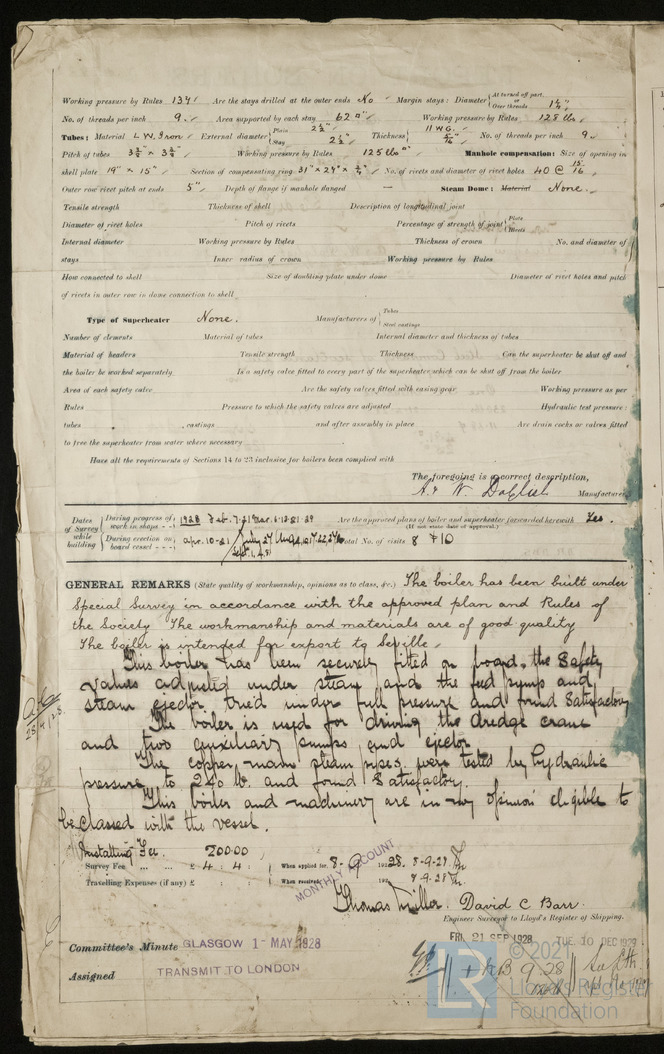 Working pressure by Rules 137 Are the stays drilled at the outer ends No Margin stays: Diameter { At turned off part, or Over threads 1¼"
No. of threads per inch 9 Area supported by each stay 62 □" Working pressure by Rules 128 lbs
Tubes: Material L W. Iron External diameter { Plain 2½" Stay 2½" Thickness { 11 W G. 5/16" No. of threads per inch 9
Pitch of tubes Working pressure by Rules 125 lbs □" Manhole compensation: Size of opening in
shell plate 19" x 15" Section of compensating ring 31" x 24" x No. of rivets and diameter of rivet holes 40 @ 15/16
Outer row rivet pitch at ends 5" Depth of flange if manhole flanged — Steam Dome: Material None.
Tensile strength Thickness of shell Description of longitudinal joint
Diameter of rivet holes Pitch of rivets Percentage of strength of joint { Plate Rivets
Internal diameter Working pressure by Rules Thickness of crown No. and diameter of
stays Inner radius of crown Working pressure by Rules
How connected to shell Size of doubling plate under dome Diameter of rivet holes and pitch
of rivets in outer row in dome connection to shell
Type of Superheater None. Manufacturers of { Tubes Steel castings
Number of elements Material of tubes Internal diameter and thickness of tubes
Material of headers Tensile strength Thickness Can the superheater be shut off and
the boiler be worked separately Is a safety valve fitted to every part of the superheater which can be shut off from the boiler
Area of each safety valve Are the safety valves fitted with easing gear Working pressure as per
Rules Pressure to which the safety valves are adjusted Hydraulic test pressure:
tubes castings and after assembly in place Are drain cocks or valves fitted
to free the superheater from water where necessary
Have all the requirements of Sections 14 to 23 inclusive for boilers been complied with
The foregoing is a correct description,
A. & W. Dalglish Manufacturer
Dates of Survey while building { During progress of work in shops - - 1928 Feb. 7.21 Mar. 6.13.21.29 Are the approved plans of boiler and superheater forwarded herewith Yes.
(If not state date of approval.)
During erection on board vessel - - - Apr. 10-21 July 27 Total No. of visits 8 + 10
Sept. 1, 4, 8
GENERAL REMARKS (State quality of workmanship, opinions as to class, &c.) The boiler has been built under
Special Survey in accordance with the approved plan and Rules of
the Society The workmanship and materials are of good quality
The boiler is intended for export to Seville.
This boiler has been securely fitted on board, the Safety
valves adjusted under steam and the feed pump and
steam ejector tried under full pressure and found Satisfactory
The boiler is used for driving the dredge crane
and two auxiliary pumps and ejector
The copper main steam pipes were tested by hydraulic
pressure to 240 lb. and found Satisfactory.
This boiler and machinery are in my opinion eligible to
be classed with the vessel.
Installing Fee 200.00
Survey Fee £ 4 : 4 : When applied for, 8-9-1928. 8-9-28
Travelling Expenses (if any) £ : : When received, 192 8-9-28
MONTHLY ACCOUNT
Thomas Miller. David C Barr.
Engineer Surveyor to Lloyd's Register of Shipping.
Committee's Minute GLASGOW 1 - MAY 1928
FRI. 21 SEP 1928
TUE. 10 DEC 1929
Assigned TRANSMIT TO LONDON
+ NB 9.28
© 2021
Lloyd's Register
Foundation
LR